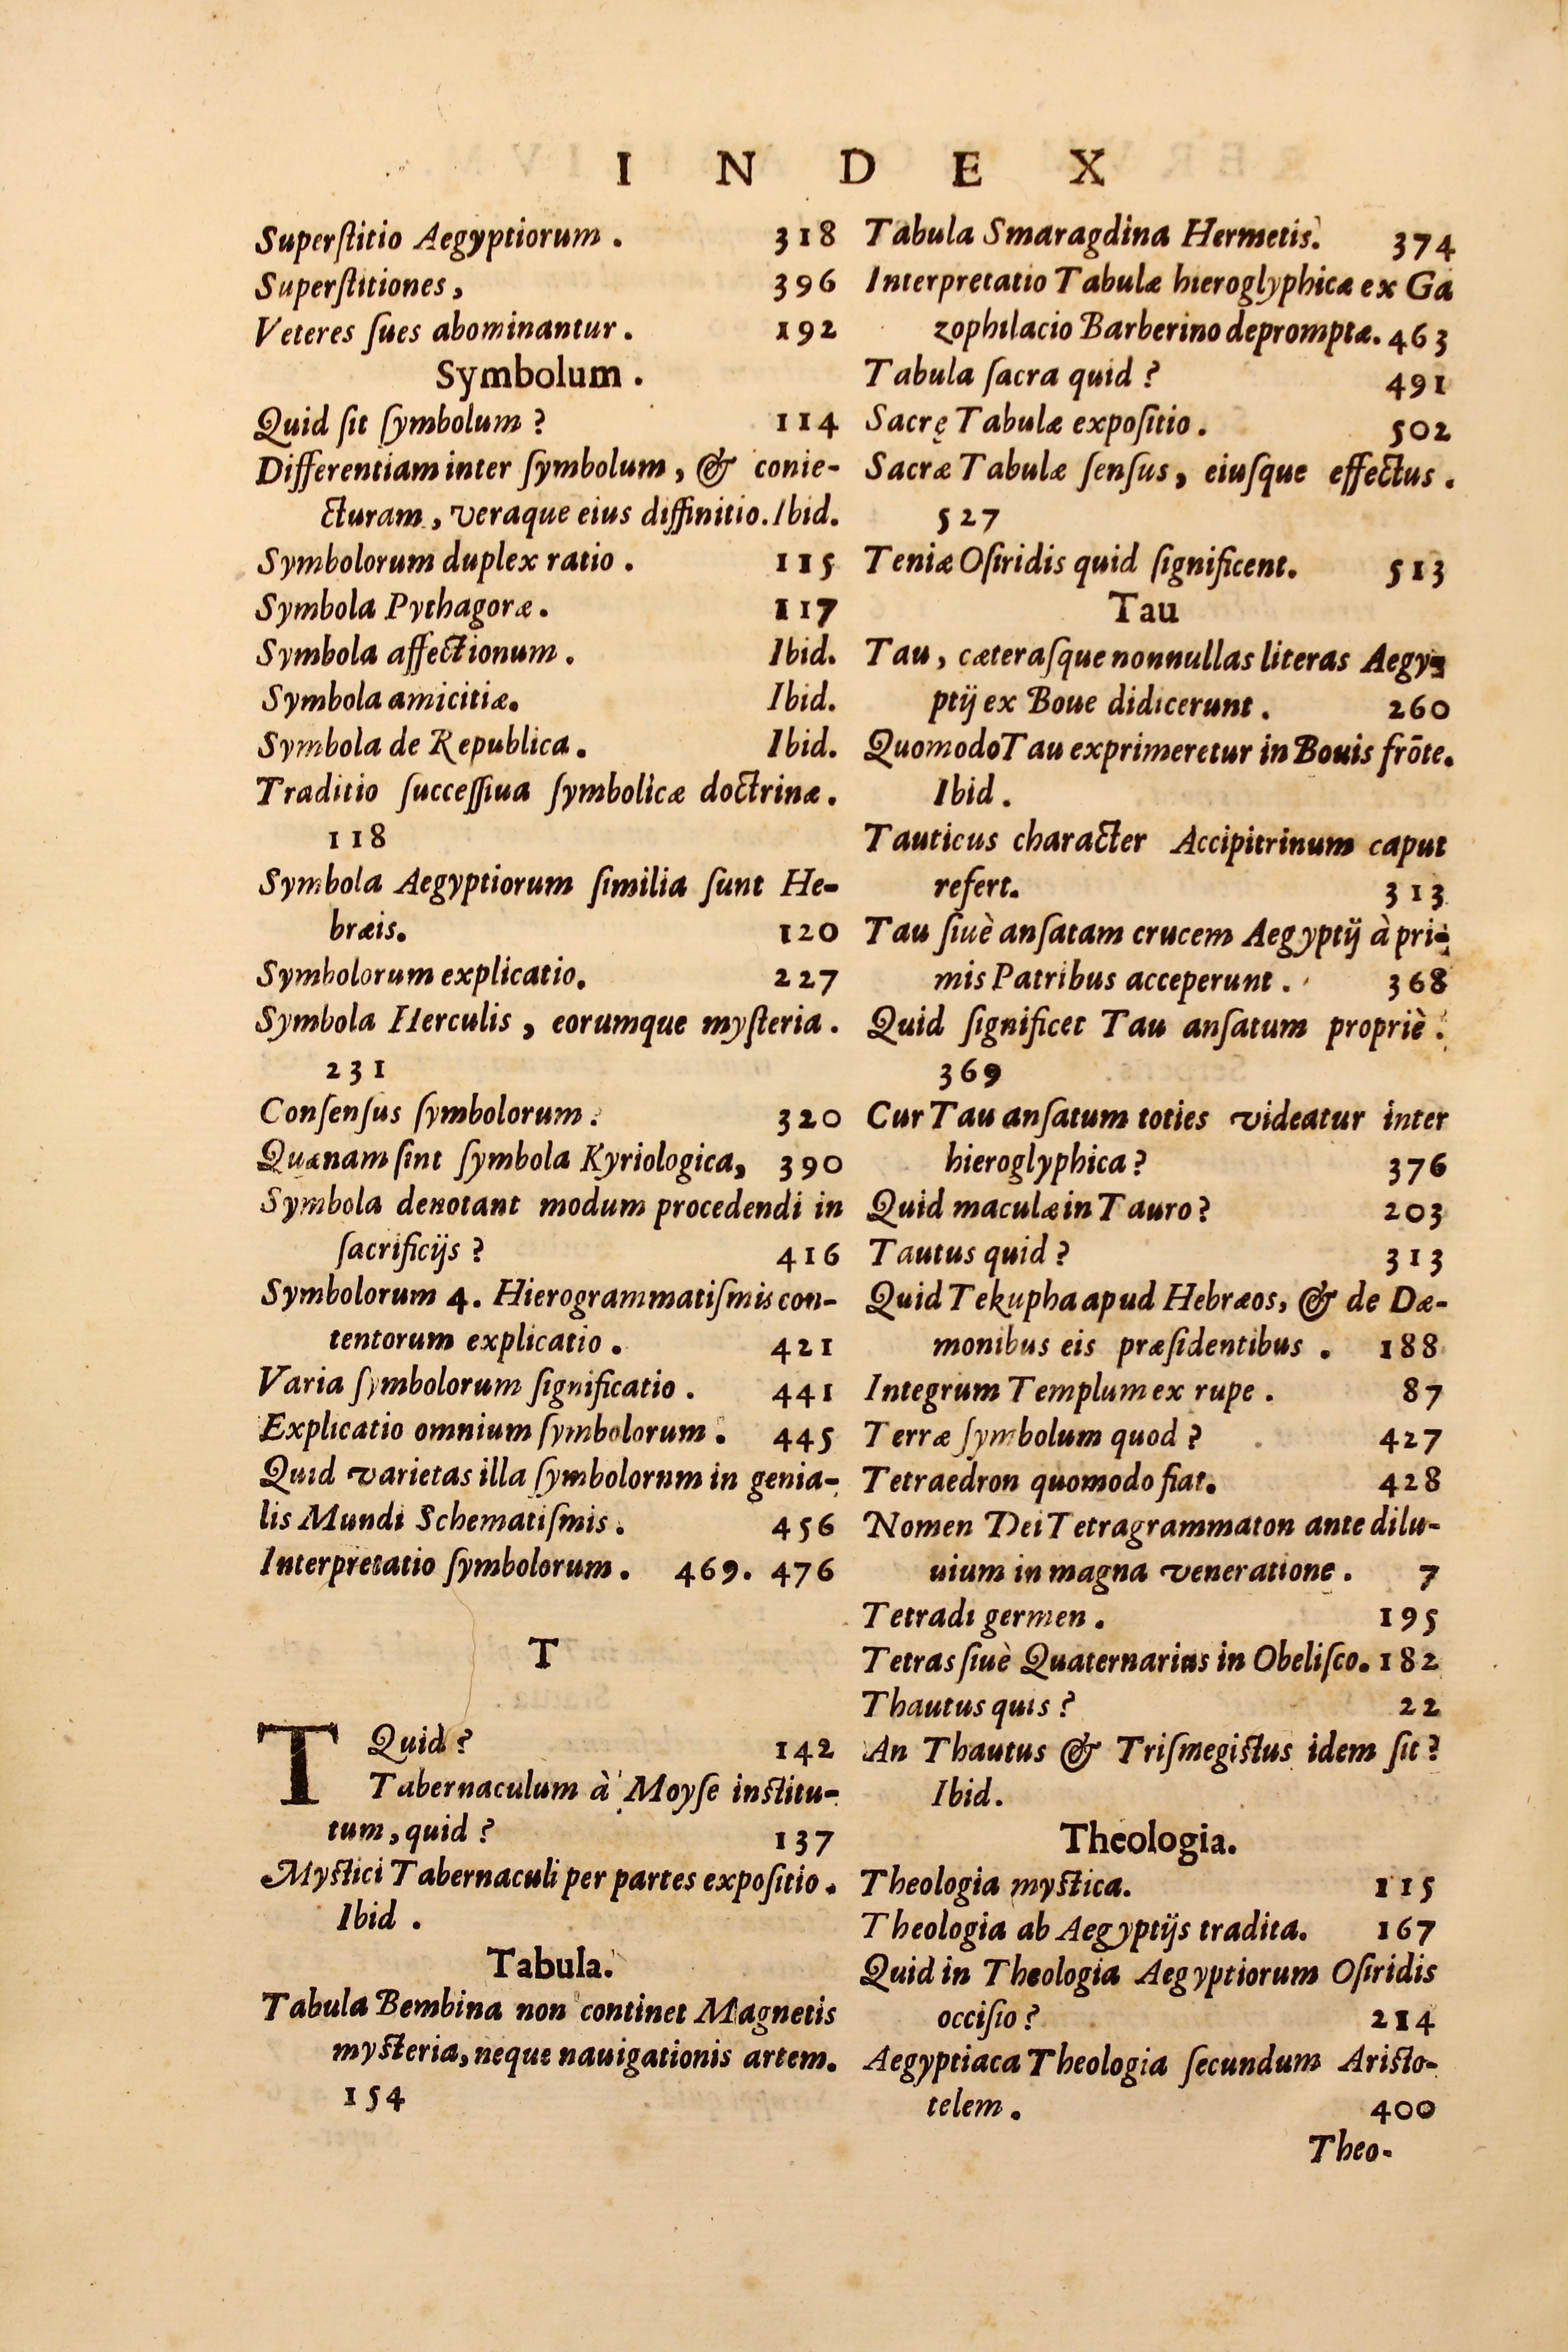 INDEX
Superſtitio Aegyptiorum . 318
Superſtitiones , 396
Veteres ſues abominantur . 192
Symbolum .
Quid ſit ſymbolum ? 114
Differentiam inter ſymbolum , & conie-
cturam , veraque eius diffinitio. Ibid.
Symbolorum duplex ratio . 115
Symbola Pythagoræ . 117
Symbola affectionum . Ibid.
Symbola amicitiæ. Ibid.
Symbola de Republica . Ibid.
Traditio ſucceſſiua ſymbolicæ doctrinæ .
118
Symbola Aegyptiorum ſimilia ſunt He-
bræis. 120
Symbolorum explicatio. 227
Symbola Herculis , eorumque myſteria .
231
Conſenſus ſymbolorum . 320
Quænam ſint ſymbola Kyriologica, 390
Symbola denotant modum procedendi in
ſacrificijs ? 416
Symbolorum 4. Hierogrammatiſmis con-
tentorum explicatio . 421
Varia ſymbolorum ſignificatio . 441
Explicatio omnium ſymbolorum . 445
Quid varietas illa ſymbolornm in genia-
lis Mundi Schematiſmis . 456
Interpretatio ſymbolorum . 469. 476
T
T Quid ? 142
Tabernaculum à Moyſe inſtitu-
tum , quid ? 137
Myſtici Tabernaculi per partes expoſitio .
Ibid .
Tabula.
Tabula Bembina non continet Magnetis
myſteria, neque nauigationis artem.
154
Tabula Smaragdina Hermetis. 374
Interpretatio Tabulæ hieroglyphicæ ex Ga
zophilacio Barberino depromptæ. 463
Tabula ſacra quid ? 491
Sacrę Tabulæ expoſitio . 502
Sacræ Tabulæ ſenſus , eiuſque effectus .
527
Teniæ Oſiridis quid ſignificent. 513
Tau
Tau , cæteraſque nonnullas literas Aegy-
ptij ex Boue didicerunt . 260
Quomodo Tau exprimeretur in Bouis frōte.
Ibid .
Tauticus character Accipitrinum caput
refert. 313
Tau ſiuè anſatam crucem Aegyptij à pri-
mis Patribus acceperunt . 368
Quid ſignificet Tau anſatum propriè .
369
Cur Tau anſatum toties videatur inter
hieroglyphica ? 376
Quid maculæ in Tauro ? 203
Tautus quid ? 313
Quid Tekupha apud Hebræos, & de Dæ-
monibus eis præſidentibus . 188
Integrum Templum ex rupe . 87
Terræ ſymbolum quod ? 427
Tetraedron quomodo fiat. 428
Nomen Dei Tetragrammaton ante dilu-
uium in magna veneratione . 7
Tetradi germen . 195
Tetras ſiuè Quaternarius in Obeliſco. 182
Thautus quis ? 22
An Thautus & Triſmegiſtus idem ſit ?
Ibid.
Theologia.
Theologia myſtica. 115
Theologia ab Aegyptijs tradita. 167
Quid in Theologia Aegyptiorum Oſiridis
occiſio ? 214
Aegyptiaca Theologia ſecundum Ariſto-
telem . 400
Theo-